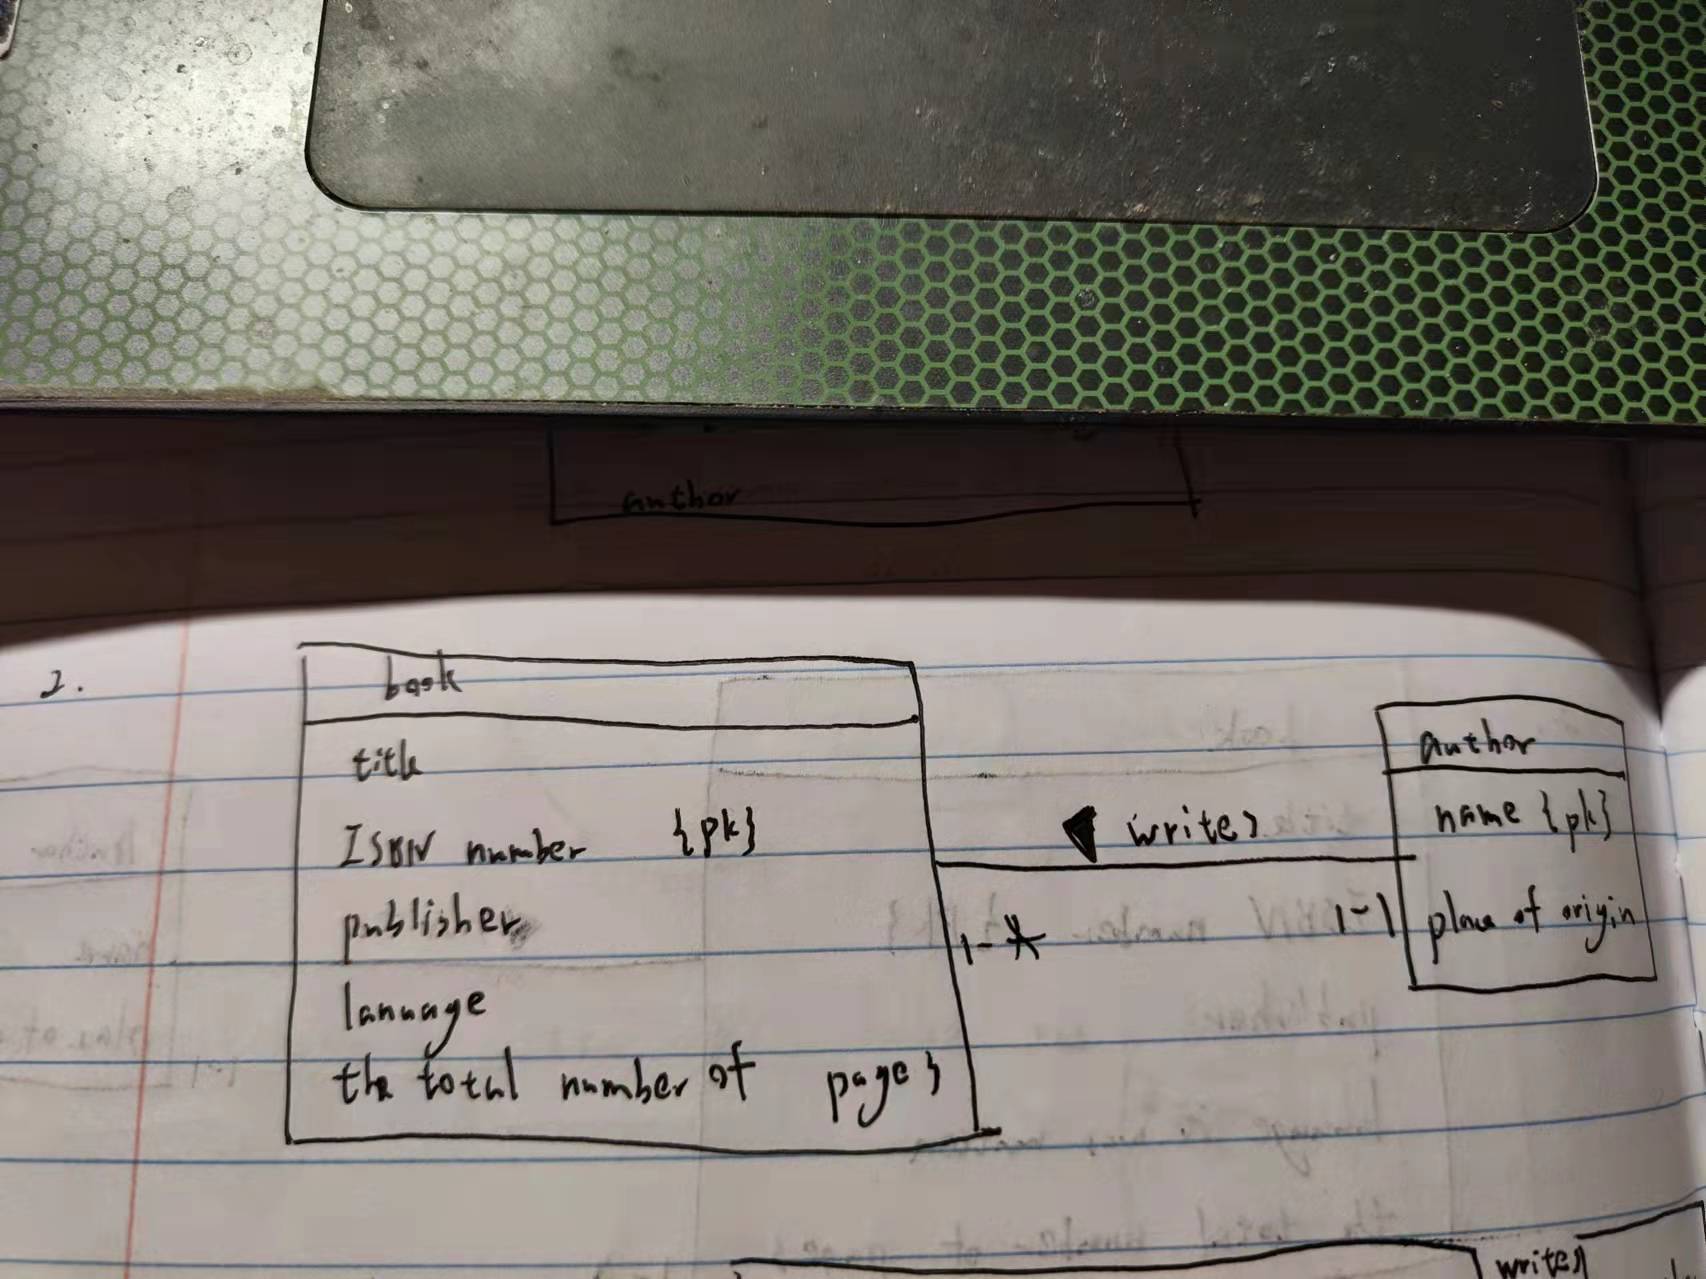 author
2.
book
title
ISBN number {pk}
publisher
lanuage
the total number of pages
writes
1-*
1-1
author
name {pk}
place of origin
writes